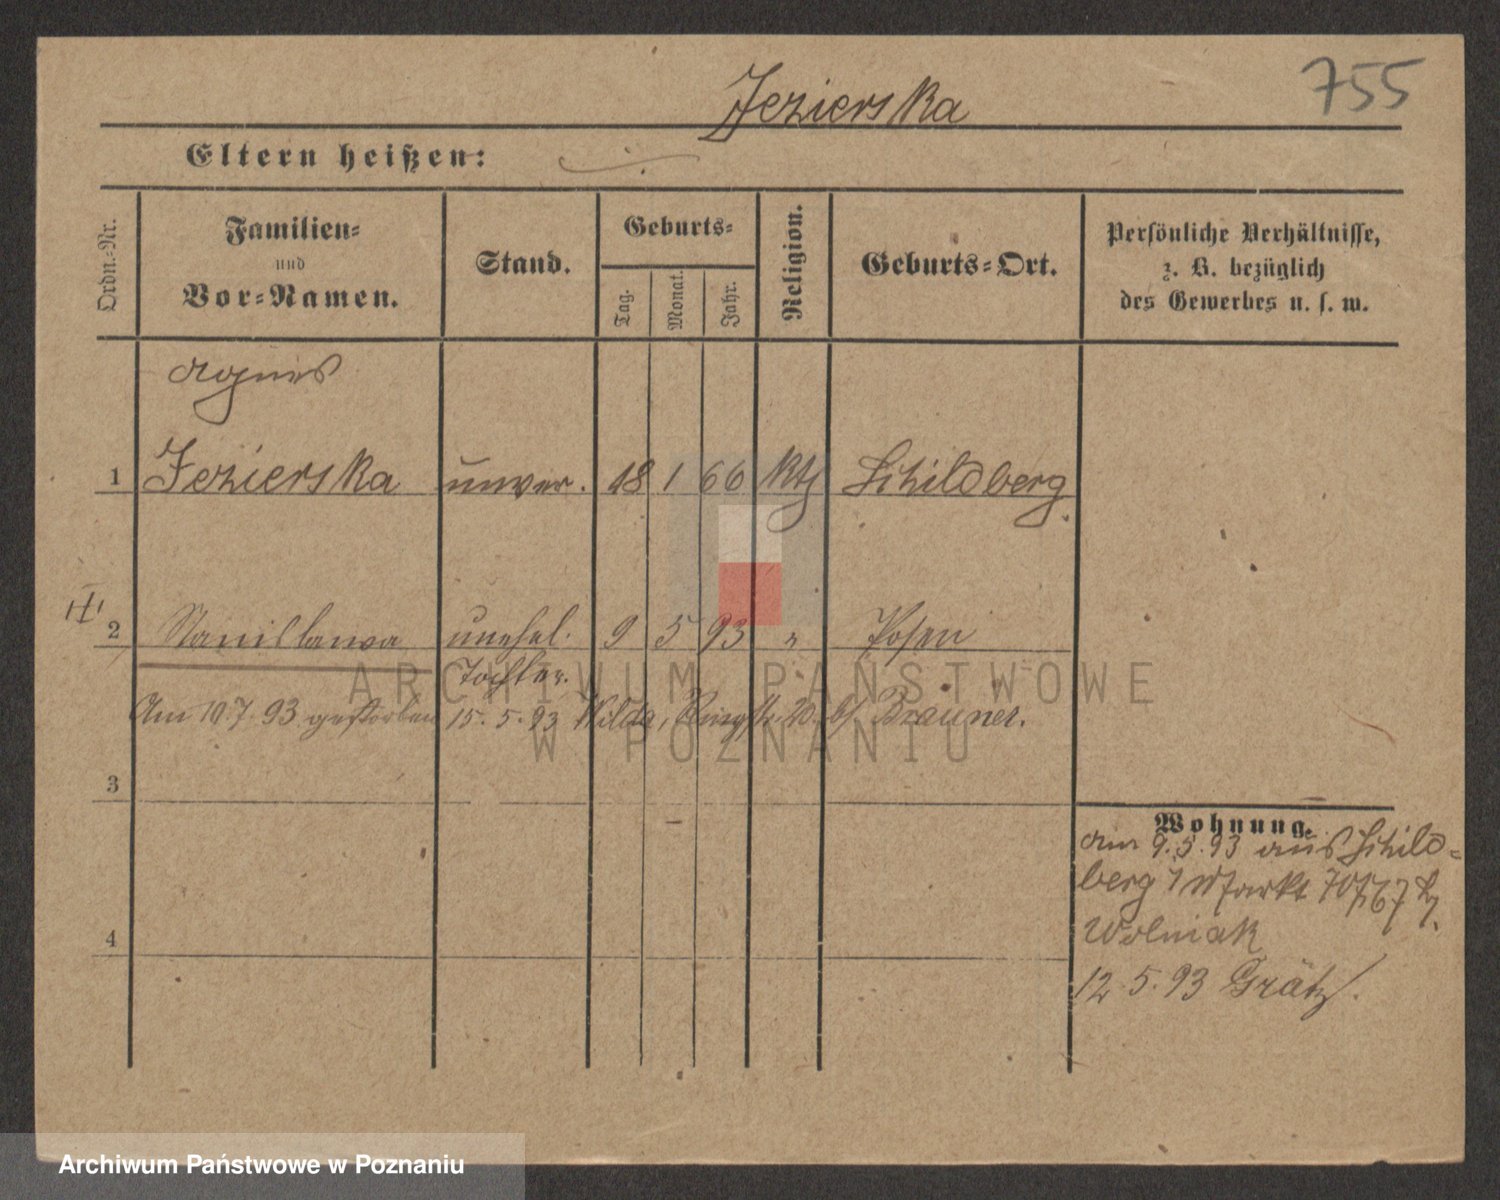 755
Jezierska
Eltern heißen:
Ordn.-Nr.
Familien-
und
Vor-Namen.
Stand.
Geburts-
Tag.
Monat.
Jahr.
Religion.
Geburts-Ort.
Persönliche Verhältnisse,
z. B. bezüglich
des Gewerbes u. s. w.
Agnes
1 Jezierska unver. 18 1 66 kth Schildberg
2 Stanislawa unehel. 9 5 93 " Posen
Tochter.
ARCHIWUM PAŃSTWOWE
Am 10.7.93 gestorben 15.5.93 Wilda, Ringstr. 20. b/ Brauner.
W POZNANIU
3
Wohnung.
am 9.5.93 aus Schild-
berg
Wolniak
4
12.5.93 Grätz.
Archiwum Państwowe w Poznaniu